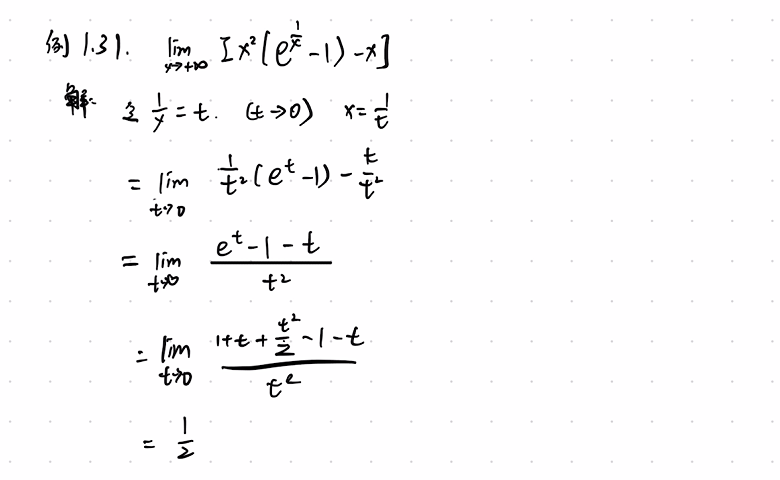 例 1.31. lim_{x→+∞} [x²(e^{1/x} -1) -x]
解: 令 1/x = t. (t→0) x = 1/t
= lim_{t→0} 1/t² (e^t -1) - t/t²
= lim_{t→0} (e^t -1 - t)/t²
= lim_{t→0} (1+t+t²/2 -1-t)/t²
= 1/2